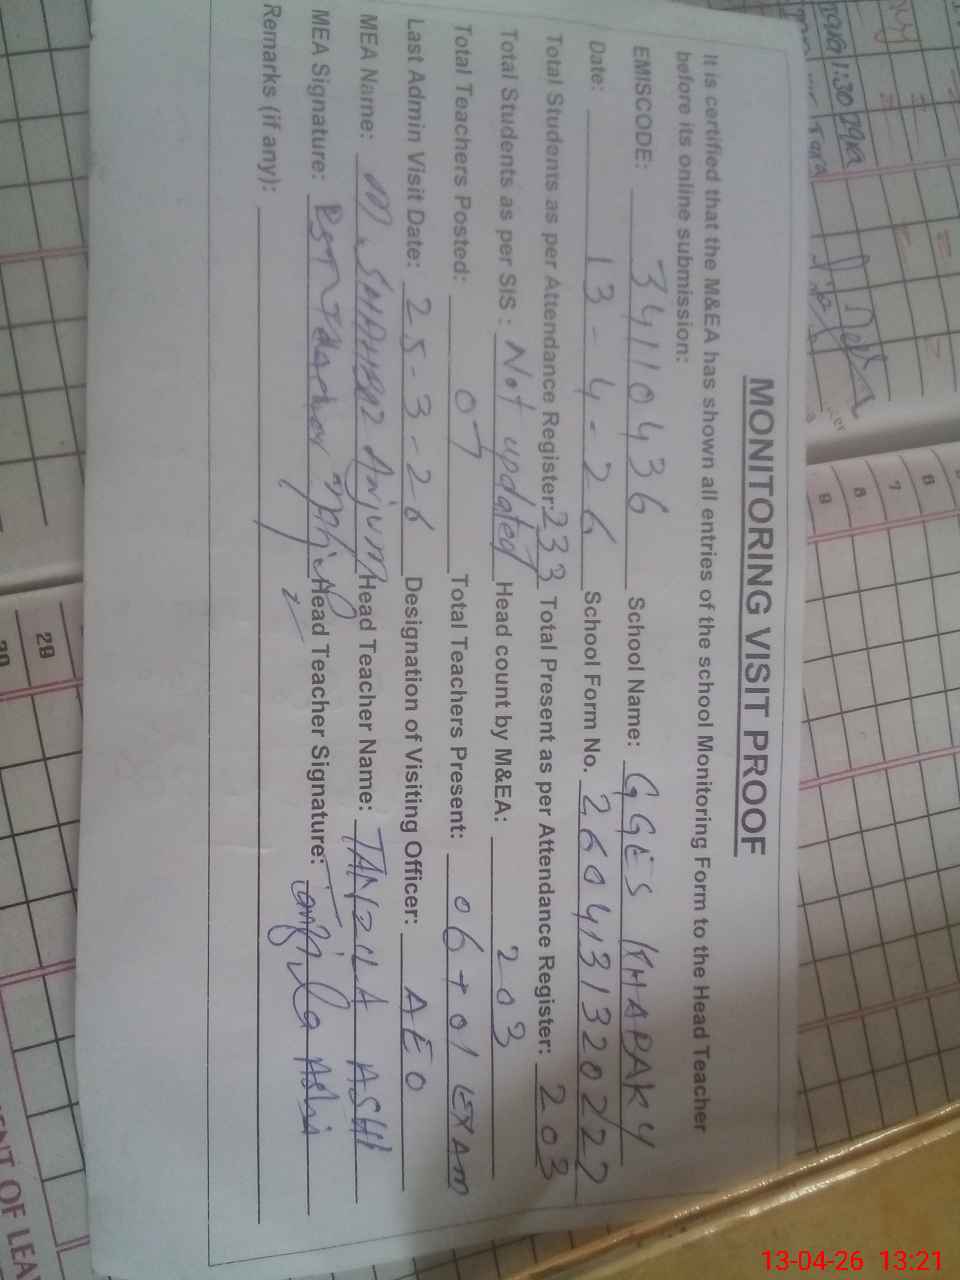 MONITORING VISIT PROOF
It is certified that the M&EA has shown all entries of the school Monitoring Form to the Head Teacher
before its online submission:
EMISCODE: 34110436 School Name: GGES KHARAK 4
Date: 13-4-26 School Form No. 26041313202 27
Total Students as per Attendance Register: 233 Total Present as per Attendance Register: 203
Total Students as per SIS : Not updated Head count by M&EA: 203
Total Teachers Posted: 07 Total Teachers Present: 06 + 01 EXAM
Last Admin Visit Date: 25-3-26 Designation of Visiting Officer: AEO
MEA Name: M. SHAHBAZ Anjum Head Teacher Name: TANZILA ASHI
MEA Signature: Head Teacher Signature: Tanzila Ashi
Remarks (if any):
6
7
8
9
29
30
OF LEA
13-04-26 13:21